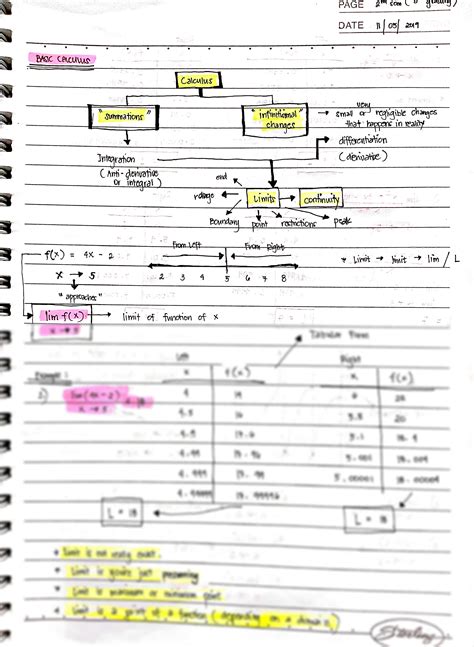 PAGE 2nd sem
DATE 11/05/2019
BASIC CALCULUS
Calculus
"summations"
"infinitional changes"
very
small or negligible changes
that happens in reality
differentiation
(derivative)
Integration
(Anti-derivative
or integral)
end
range
Limits
continuity
Boundary point restrictions peak
From Left From Right
f(x) = 4x - 2
* Limit → limit → lim / L
x → 5
2 3 4 5 6 7 8
"approaches"
lim f(x)
x → 5
limit of function of x
Tabular Form
Left Right
Example:
x f(x) x f(x)
lim (4x-2) = 18
x → 5
4 14 6 22
4.5 16 5.5 20
4.9 17.6 5.1 18.4
4.99 17.96 5.001 18.004
4.999
5.00001 18.00004
4.99999 17.99996
L = 18
L = 18
* Limit is not really exact.
* Limit is you're just presuming
* Limit is maximum or minimum point
* Limit is a point of a function (depending on a domain)